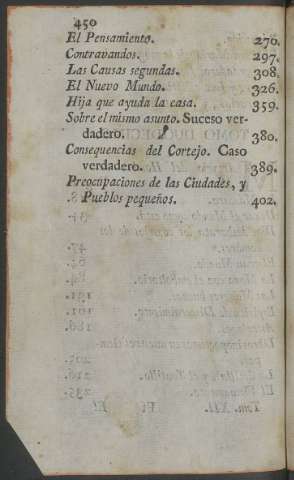 450
El Pensamiento. 270.
Contravandos. 297.
Las Causas segundas. 308.
El Nuevo Mundo. 326.
Hija que ayuda la casa. 359.
Sobre el mismo asunto. Suceso ver-
dadero. 380.
Consequencias del Cortejo. Caso
verdadero. 389.
Preocupaciones de las Ciudades, y
Pueblos pequeños. 402.